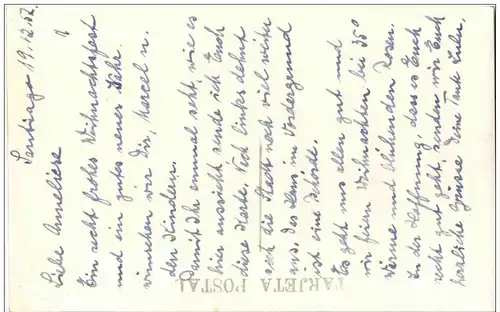 Santiago 19.12.52.
Liebe Anneliese
Ein recht frohes Weihnachtsfest
und ein gutes neues Jahr
wünschen wir Dir, Marcel u.
den Kindern.
Damit Ihr einmal seht, wie es
hier aussieht sende ich Euch
diese Karte. Nach links dehnt
sich die Stadt noch viel weiter
aus. Das Haus im Vordergrund
ist eine Behörde.
Es geht uns allen gut und
wir feiern Weihnachten bei 35°
Wärme und blühenden Rosen.
In der Hoffnung, dass es Euch
recht gut geht senden wir Euch
herzliche Grüsse Deine Tante Lulu,
TARJETA POSTAL